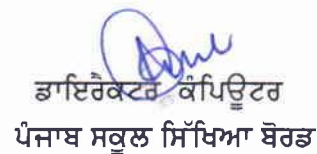 ਡਾਇਰੈਕਟਰ ਕੰਪਿਊਟਰ
ਪੰਜਾਬ ਸਕੂਲ ਸਿੱਖਿਆ ਬੋਰਡ